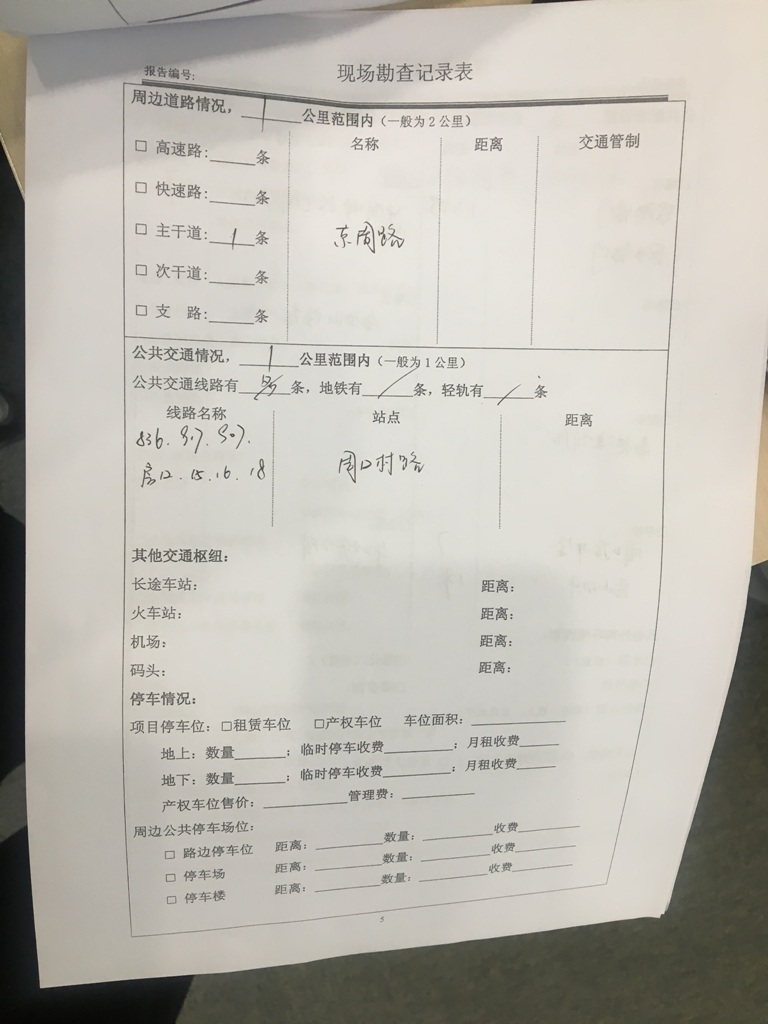 报告编号:
现场勘查记录表
周边道路情况，1公里范围内（一般为2公里）
名称 距离 交通管制
□ 高速路:____条
□ 快速路:____条
□ 主干道:1条
京周路
□ 次干道:____条
□ 支 路:____条
公共交通情况，1公里范围内（一般为1公里）
公共交通线路有多条，地铁有/条，轻轨有/条
线路名称 站点 距离
836. 917. 907.
房12. 15. 16. 18
周口村路
其他交通枢纽：
长途车站： 距离：
火车站： 距离：
机场： 距离：
码头： 距离：
停车情况：
项目停车位：□租赁车位 □产权车位 车位面积：________
地上：数量______；临时停车收费________；月租收费____
地下：数量______；临时停车收费________；月租收费____
产权车位售价：________管理费：________
周边公共停车场位：
□ 路边停车位 距离：________数量：________收费______
□ 停车场 距离：________数量：________收费______
□ 停车楼 距离：________数量：________收费______
5